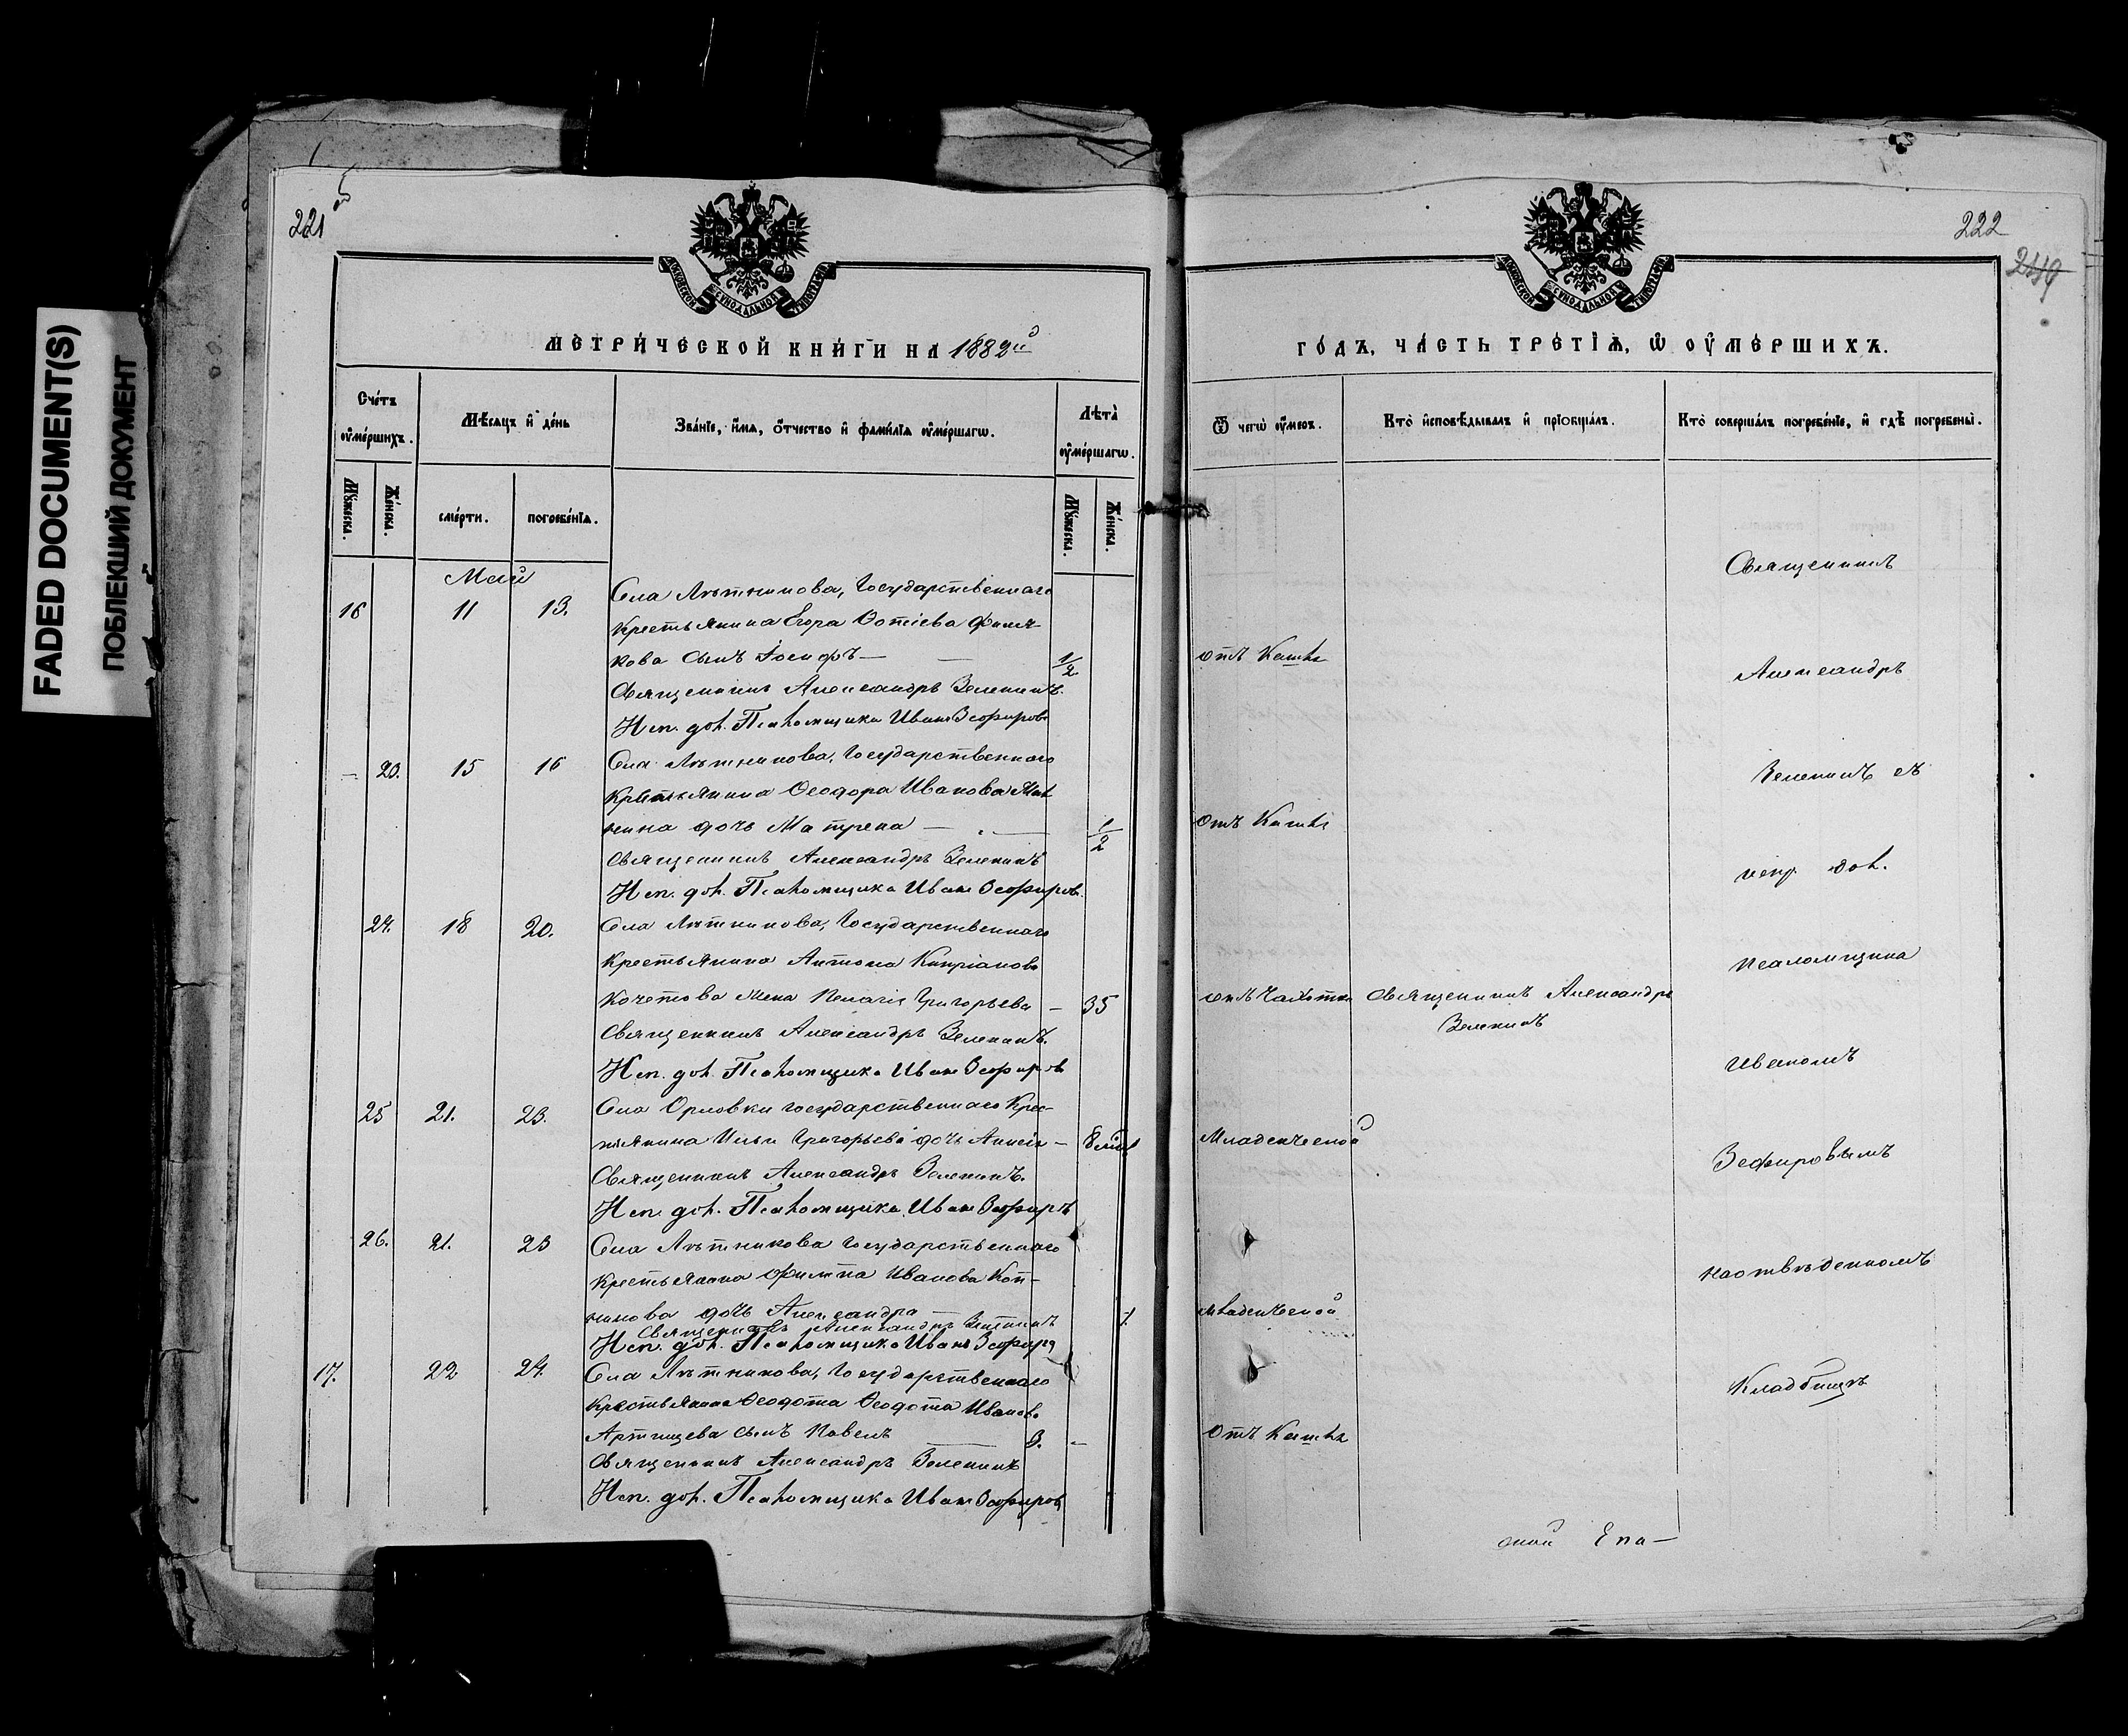 FADED DOCUMENT(S)
ПОБЛЕКШИЙ ДОКУМЕНТ
221
МОСКОВСКОЙ СѴНОДАЛЬНОЙ ТИПОГРАФІИ
МЕТРИЧЕСКОЙ КНИГИ НА 1882й
Счетъ умершихъ.
Мѣсяцъ и день
Званіе, имя, отчество и фамилія умершагѡ.
Лѣта умершагѡ.
Мужеска.
Женска.
смерти.
погребенія.
Мужеска.
Женска.
Май
16 11 13. Села Лѣтникова, Государственнаго
Крестьянина Егора Фотіева
кова сынъ Іосифъ — — 1/2
Священникъ Александръ Зеленинъ.
Исп. дол. Псаломщика Иванъ Зефировъ
— 20. 15 16 Села Лѣтникова, Государственнаго
Крестьянина Ѳеодора Иванова
нина дочь Матрена — — 1/2
Священникъ Александръ Зеленинъ
Исп. дол. Псаломщика Иванъ Зефировъ.
24. 18 20. Села Лѣтникова, Государственнаго
Крестьянина Антона Кипріанова
Кочетова жена Пелагія Григорьева — 35
Священникъ Александръ Зеленинъ.
Исп. дол. Псаломщика Иванъ Зефировъ
25 21. 23. Села Орловки государственнаго Крес-
тьянина Ильи Григорьева дочь — 8
Священникъ Александръ Зеленинъ.
Исп. дол. Псаломщика Иванъ Зефиръ
26. 21. 23 Села Лѣтникова Государственнаго
Крестьянина Филипа Иванова
никова дочь Александра — 1
Священникъ Александръ Зеленинъ
Исп. дол. Псаломщика Иванъ Зефиръ
17. 22 24. Села Лѣтникова, Государственнаго
Крестьянина Ѳеодота Ѳеодота Иванова
Артищева сынъ Павелъ — 3. —
Священникъ Александръ Зеленинъ
Исп. дол. Псаломщика Иванъ Зефировъ
222
МОСКОВСКОЙ СѴНОДАЛЬНОЙ ТИПОГРАФІИ
ГОДЪ, ЧАСТЬ ТРЕТІЯ, Ѿ ОУМЕРШИХЪ.
Ѿ чегѡ умеръ.
Кто исповѣдывалъ и пріобщалъ.
Кто совершалъ погребеніе, и гдѣ погребены.
Священникъ
отъ Кашля
Александръ
Зеленинъ съ
отъ Кашля
испр. дол.
Псаломщика
отъ Чахотки Священникъ Александръ
Зеленинъ
Иваномъ
Младенческой
Зефировымъ
на отведенномъ
младенческой
Кладбищѣ
отъ Кашля
ской Епа-